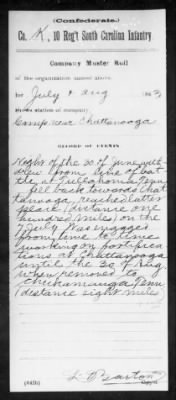 (Confederate.)
Co. K, 10 Reg't South Carolina Infantry
Company Muster Roll
of the organization named above,
for July & Aug 1863.
Station of company
Camp near Chattanooga
RECORD OF EVENTS.
Night of the 30 of June with-
drew from line of bat
tle at Tullahoma Tenn
fell back towards Chat
tanooga, reached latter
place (distance one
hundred miles) on the
7 July Was engaged
from time to time
working on fortifica
tions at Chattanooga
until the 30 of Aug
when removed to
Chickamauga Tenn
(distance eight miles)
Barton
Copyist.